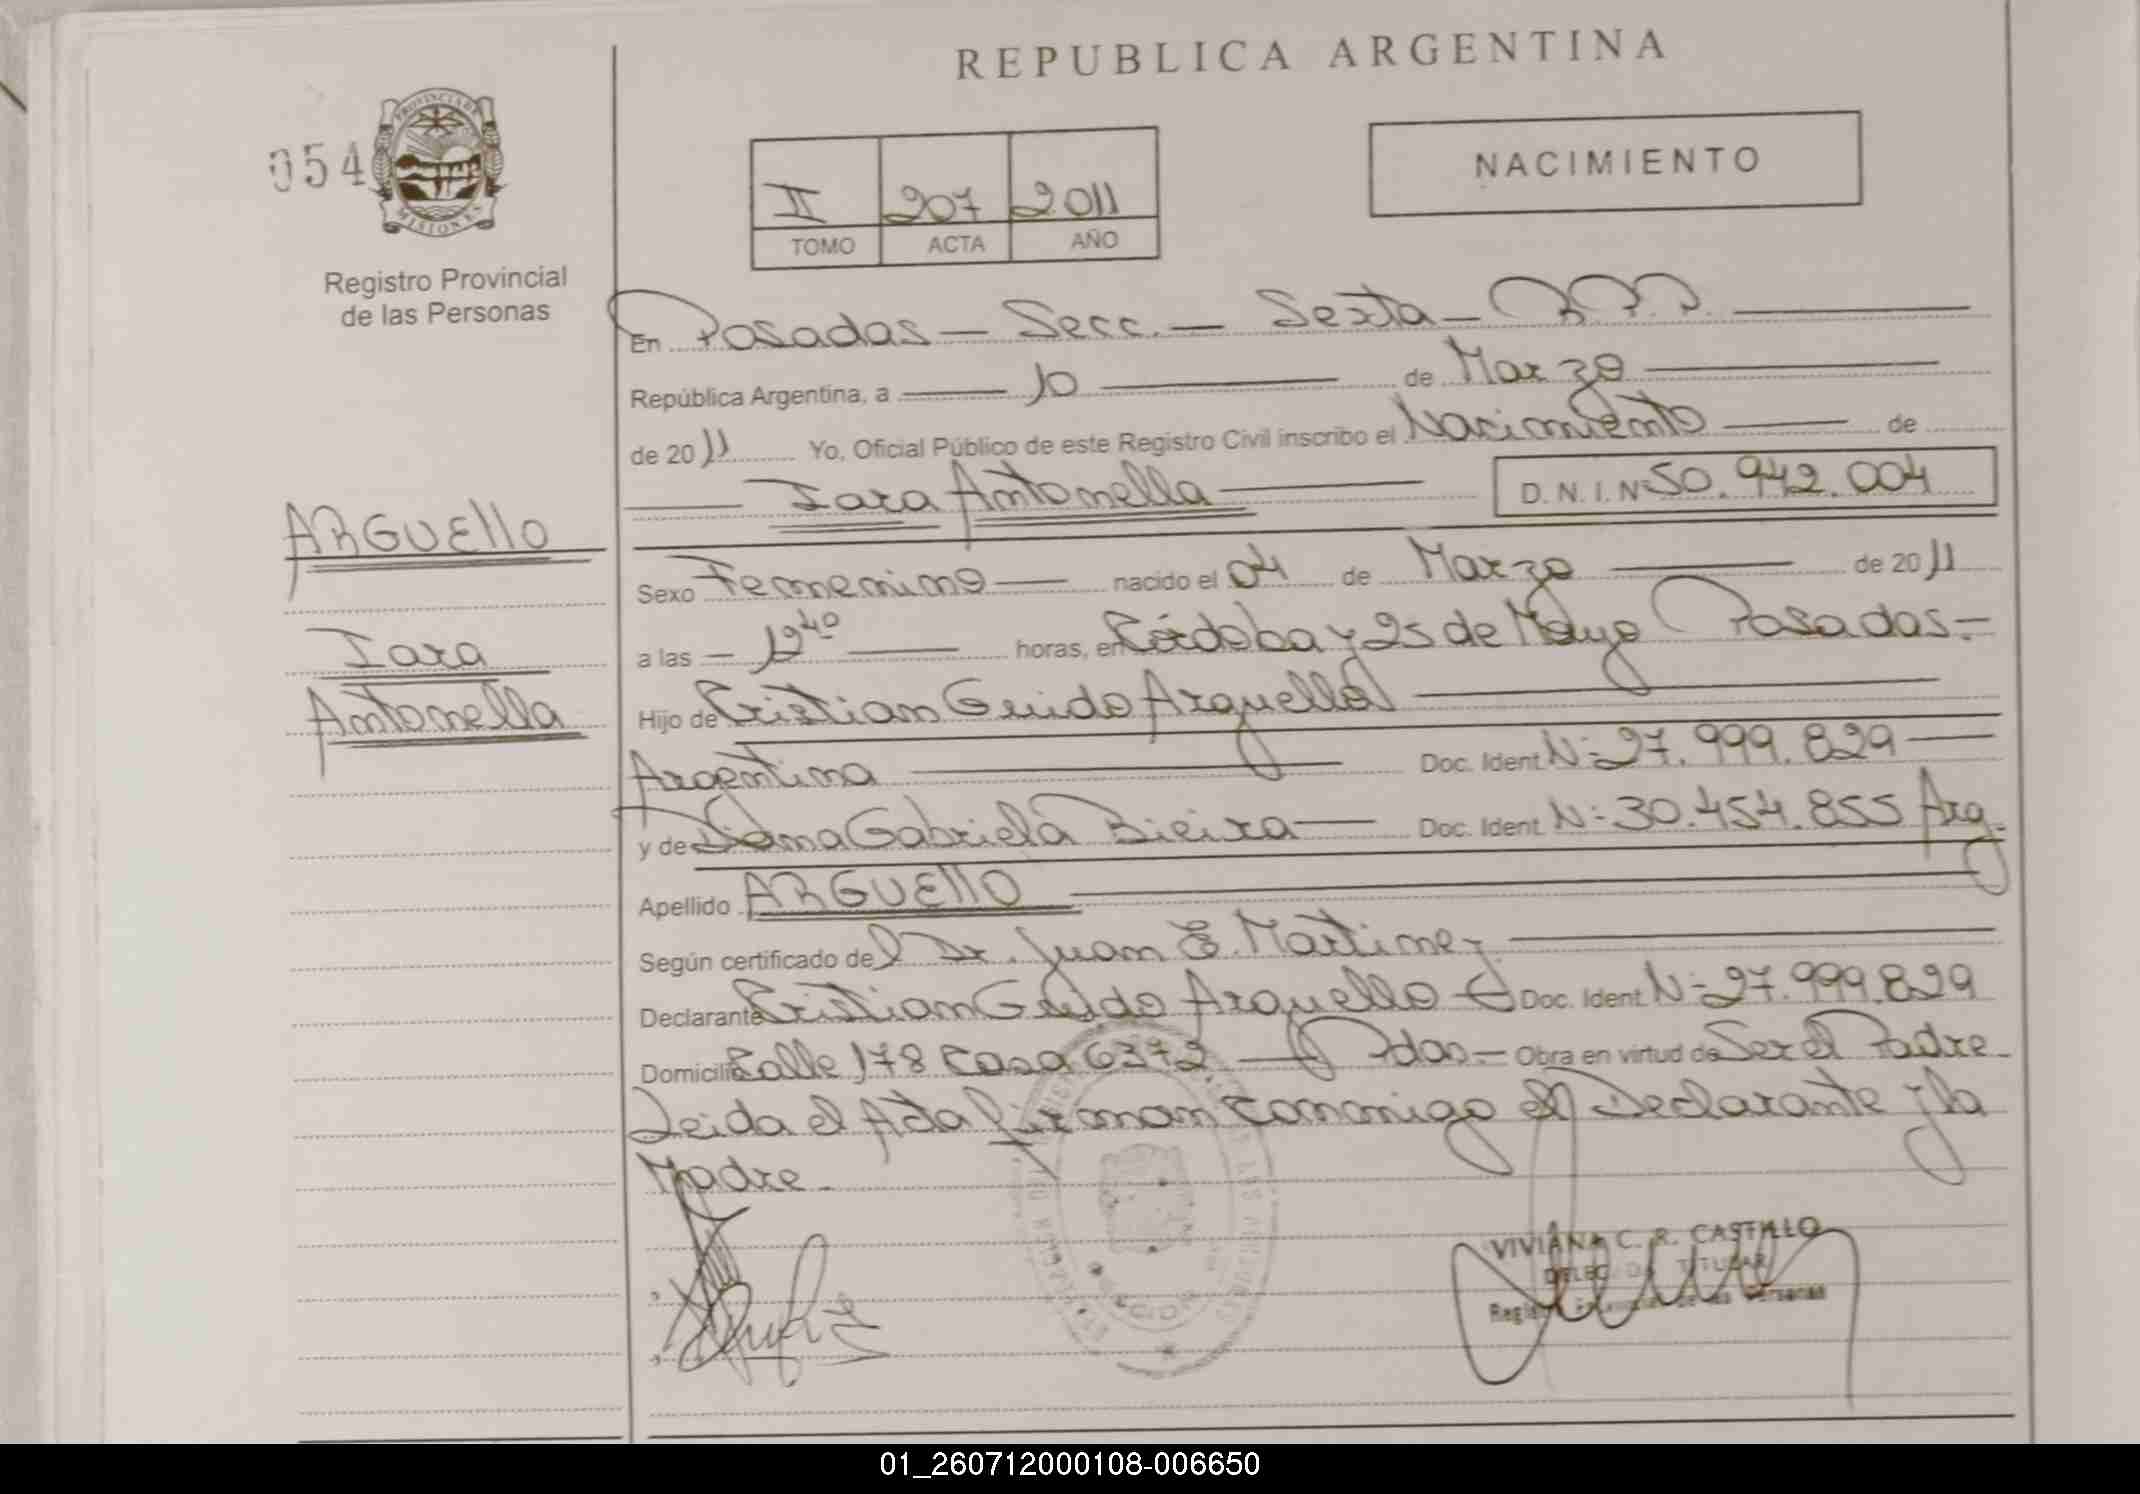 REPUBLICA ARGENTINA
054
PROVINCIA DE
MISIONES
Registro Provincial
de las Personas
II 207 2011
TOMO ACTA AÑO
NACIMIENTO
En Posadas — Secc. — Sexta — R.P.P.
República Argentina, a 10 de Marzo
de 2011 Yo, Oficial Público de este Registro Civil inscribo el Nacimiento de
Iara Antonella D.N.I. Nº 50.942.004
ARGUEllO
Iara
Antonella
Sexo Femenino nacido el 04 de Marzo de 2011
a las 12⁴⁰ horas, en Córdoba y 25 de Mayo Posadas.-
Hijo de Cristian Guido Arguello
Argentina Doc. Ident. Nº 27.999.829
y de Gabriela Bieira Doc. Ident. Nº 30.454.855 Arg.
Apellido ARGUEllO
Según certificado del Dr. Juan E. Martinez
Declarante Cristian Guido Arguello Doc. Ident. Nº 27.999.829
Domicilio Calle 178 Casa 6372 Pdas.- Obra en virtud de Ser el Padre.
Leida el Acta firman conmigo el Declarante y la
Madre.
VIVIANA C. R. CASTILLO
TITULAR
Personas
01_260712000108-006650